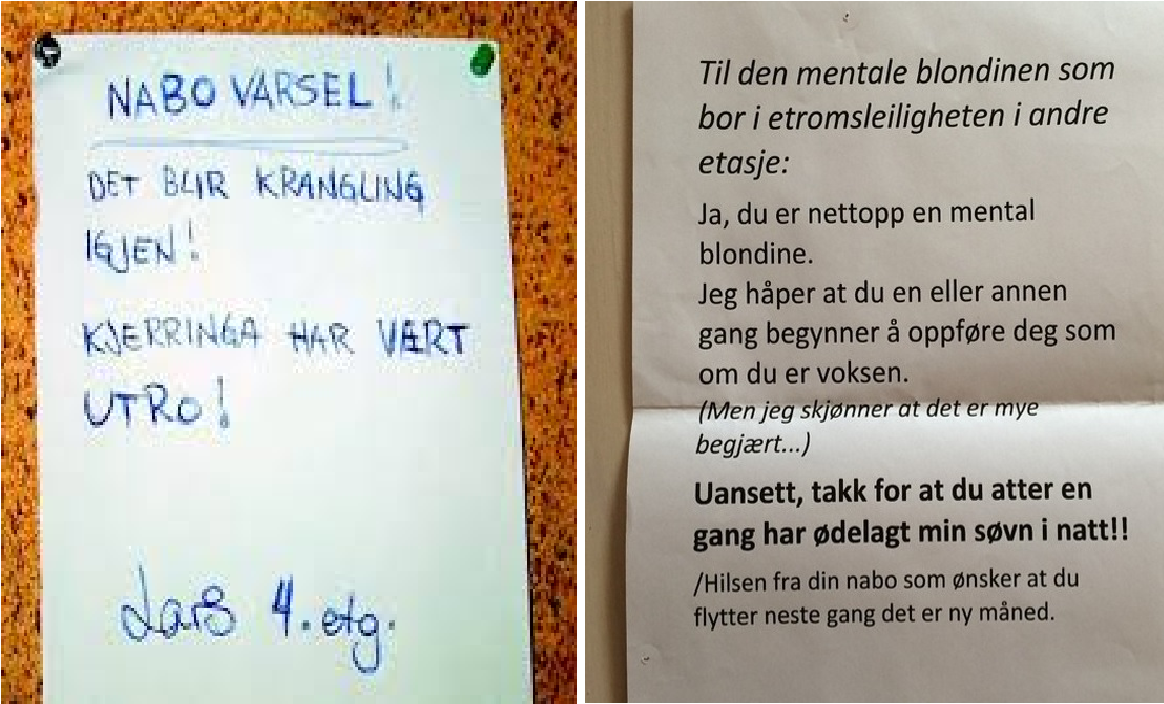 NABO VARSEL!
DET BLIR KRANGLING
IGJEN!
KJERRINGA HAR VÆRT
UTRO!
Lars 4. etg.
Til den mentale blondinen som
bor i etromsleiligheten i andre
etasje:
Ja, du er nettopp en mental
blondine.
Jeg håper at du en eller annen
gang begynner å oppføre deg som
om du er voksen.
(Men jeg skjønner at det er mye
begjært...)
Uansett, takk for at du atter en
gang har ødelagt min søvn i natt!!
/Hilsen fra din nabo som ønsker at du
flytter neste gang det er ny måned.